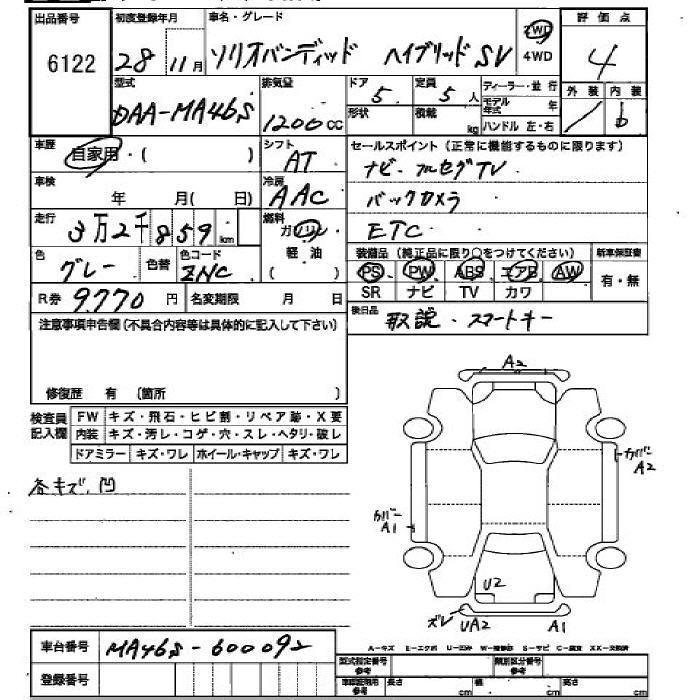 出品番号 初度登録年月 車名・グレード 2WD 評価点
6122 28 11月 ソリオバンディッド ハイブリッドSV 4WD 4
型式 排気量 ドア 定員 ディーラー・並行 外装 内装
DAA-MA46S 1200cc 5 5人 モデル年式 年
形状 積載 kg ハンドル 左・右 b
車歴 自家用・( ) シフト AT セールスポイント(正常に機能するものに限ります)
ナビ・フルセグTV
車検 年 月( 日) 冷房 AAC バックカメラ
走行 3万2千859km 燃料 ガソリン ETC
軽油 ( ) 装備品(純正品に限り○をつけてください) 新車保証書
色 グレー 色替 色コード ZNC PS PW ABS エアB AW 有・無
R券 9770円 名変期限 月 日 SR ナビ TV カワ
注意事項申告欄(不具合内容等は具体的に記入して下さい) 後日品 取説・スマートキー
修復歴 有 (箇所 )
検査員記入欄 FW キズ・飛石・ヒビ割・リペア跡・X要
内装 キズ・汚レ・コゲ・穴・スレ・ヘタリ・破レ
ドアミラー キズ・ワレ ホイール・キャップ キズ・ワレ
各キズ、凹
A2
カバー A2
カバー A1
U2
ズレ UA2 A1
A-キズ E-エクボ U-凹み W-補修跡 S-サビ C-腐食 XX-交換済
車台番号 MA46S-600092
型式指定番号 参考 類別区分番号 参考
登録番号 参考 長さ cm 幅 cm 高さ cm